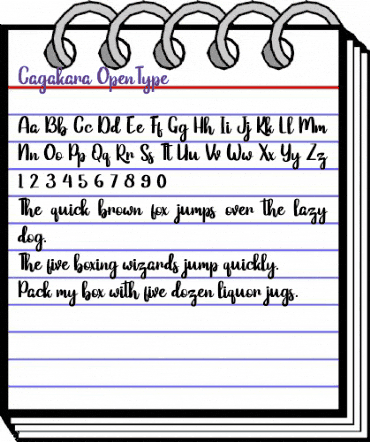 Cagakara OpenType
Aa Bb Cc Dd Ee Ff Gg Hh Ii Jj Kk Ll Mm
Nn Oo Pp Qq Rr Ss Tt Uu Vv Ww Xx Yy Zz
1 2 3 4 5 6 7 8 9 0
The quick brown fox jumps over the lazy
dog.
The five boxing wizards jump quickly.
Pack my box with five dozen liquor jugs.